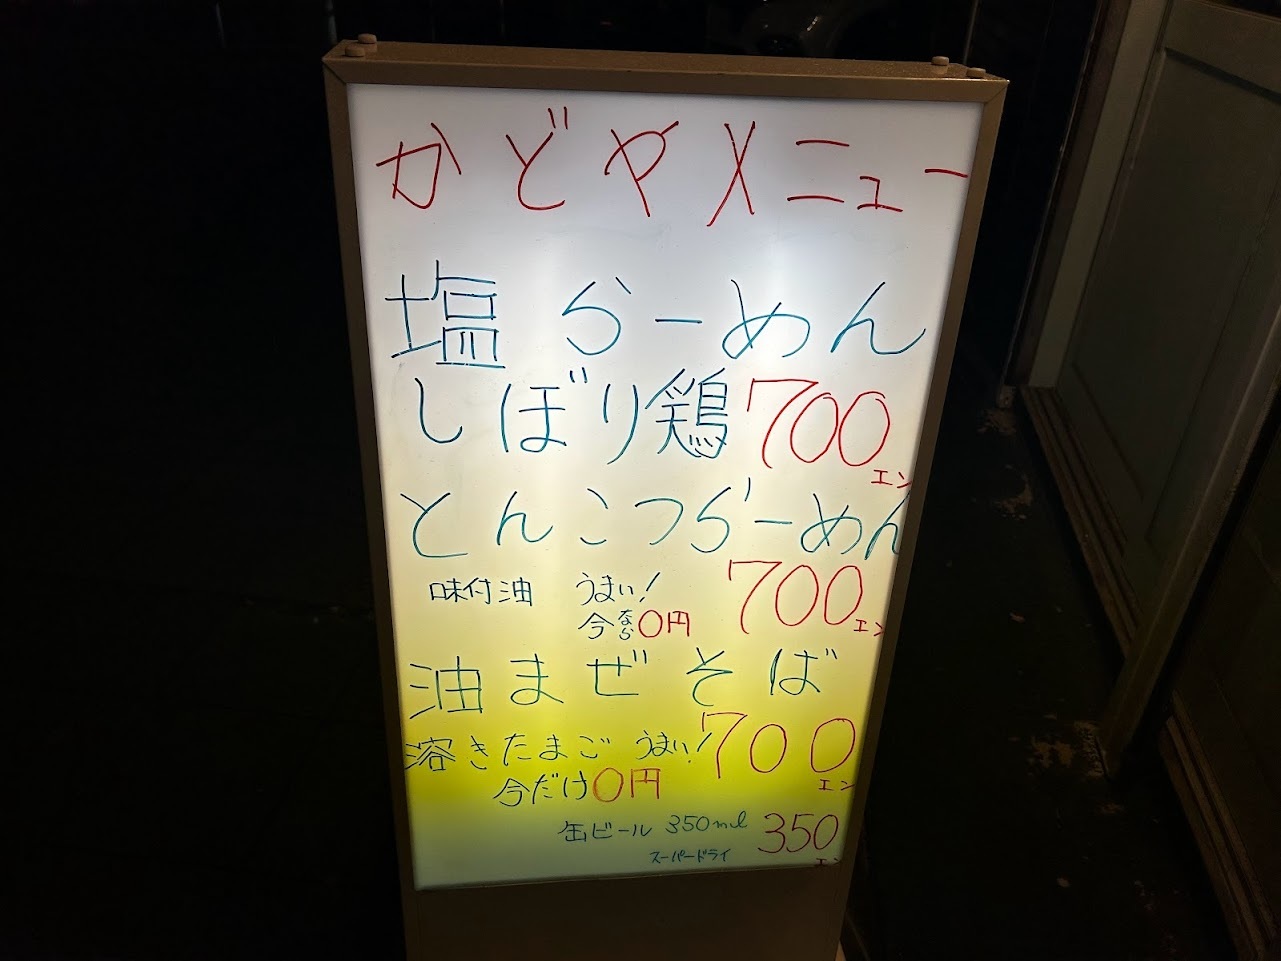 かどやメニュー
塩らーめん
しぼり鶏 700エン
とんこつらーめん
味付油 うまい! 700エン
今なら0円
油まぜそば
溶きたまご うまい! 700エン
今だけ0円
缶ビール 350ml 350エン
スーパードライ